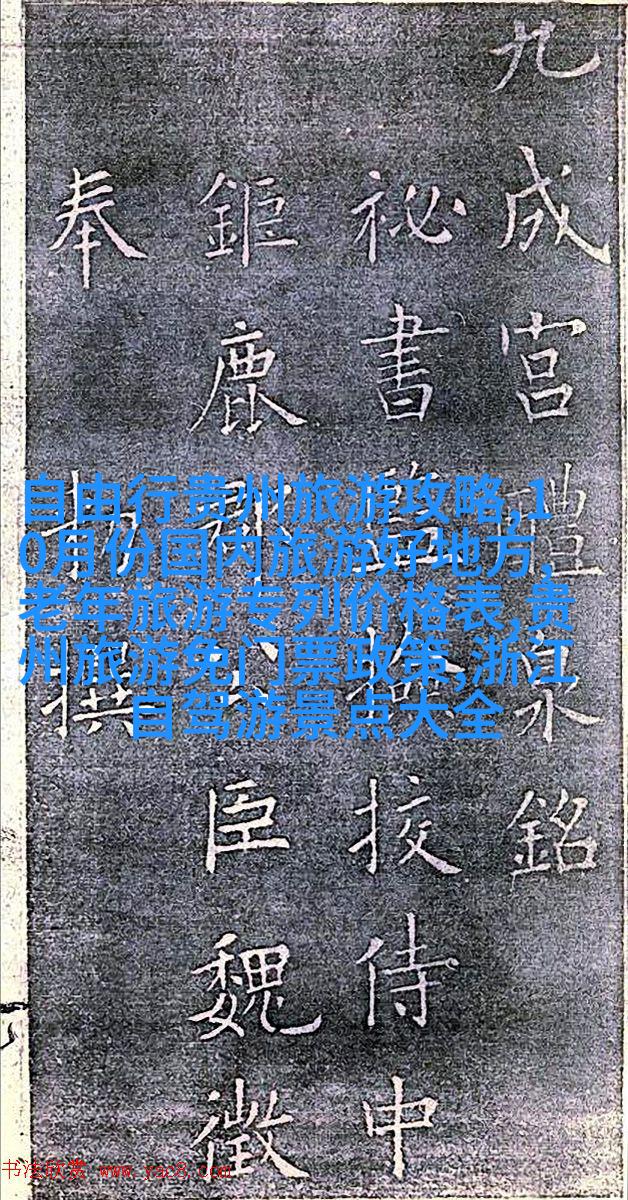 九成宮醴泉銘
祕書監檢挍侍中
鉅鹿郡公臣魏徵
奉勅撰
自由行贵州旅游攻略,1
0月份国内旅游好地方,
老年旅游专列价格表,贵
州旅游免门票政策,浙江
自驾游景点大全
书法欣赏 www.yac8.com